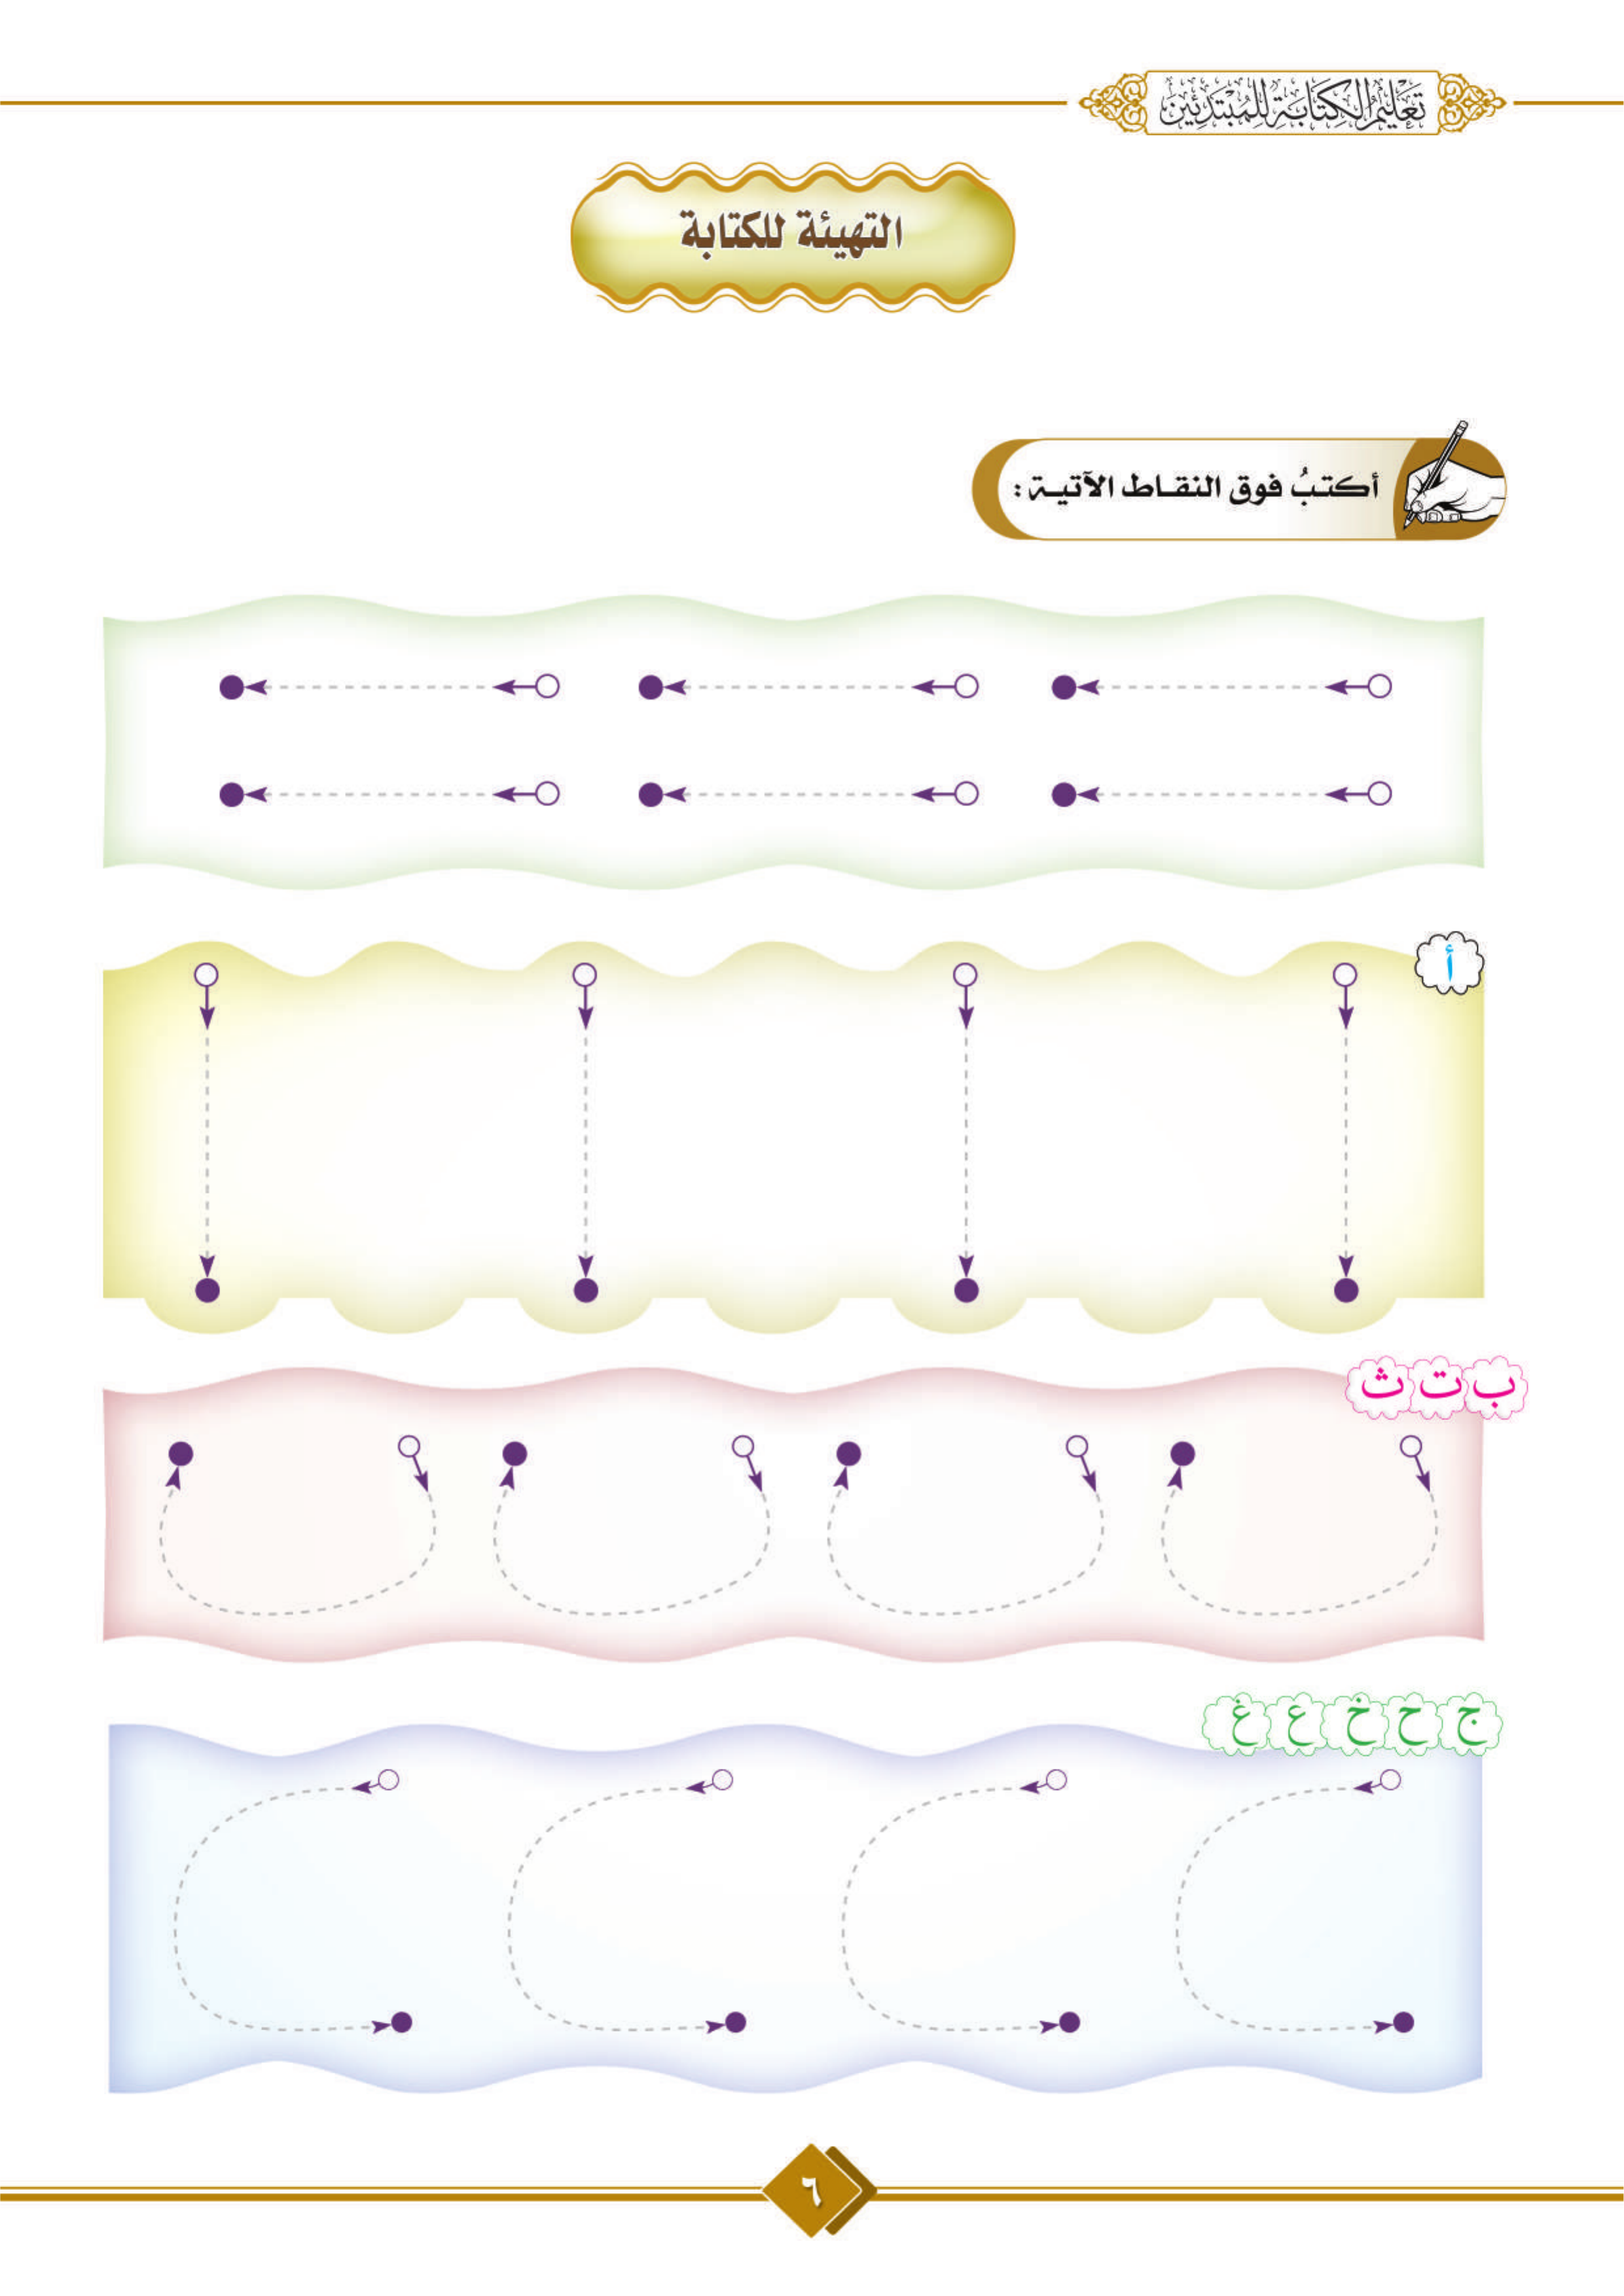 تَعْلِيمُ الكِتَابَةِ لِلْمُبْتَدِئِينَ
التهيئة للكتابة
أكتبُ فوق النقاط الآتية :
أ
ب ت ث
ج ح خ ع غ
٦